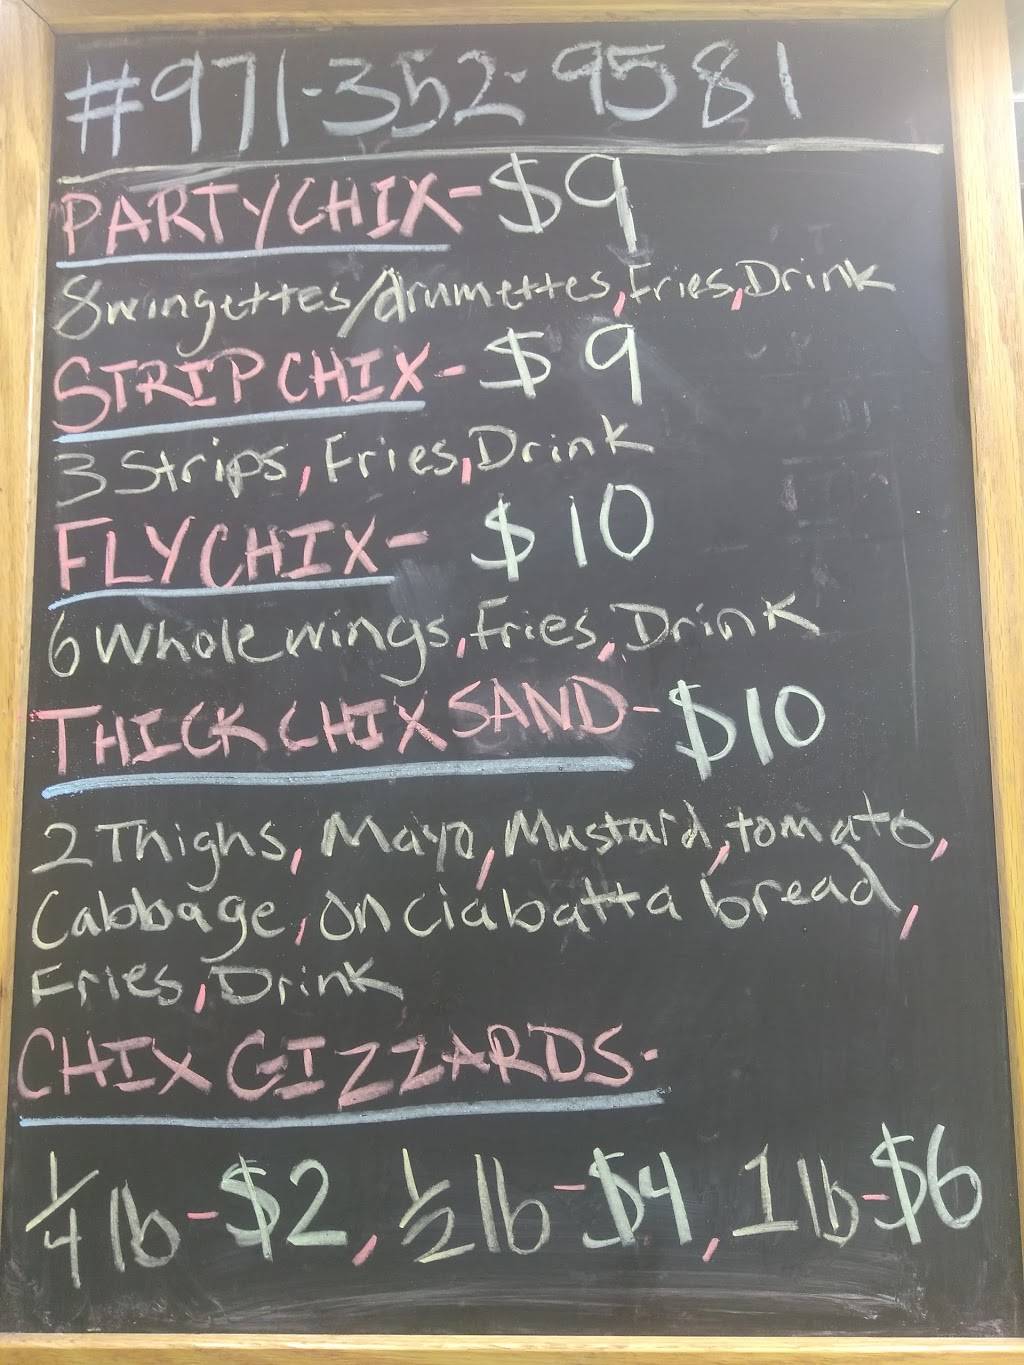 #971-352-9581
PARTY CHIX-$9
8 wingettes/drumettes, Fries, Drink
STRIP CHIX-$9
3 Strips, Fries, Drink
FLY CHIX-$10
6 Whole wings, Fries, Drink
THICK CHIX SAND-$10
2 Thighs, Mayo, Mustard, tomato,
Cabbage, on ciabatta bread,
Fries, Drink
CHIX GIZZARDS-
1/4 lb-$2, 1/2 lb-$4, 1 lb-$6